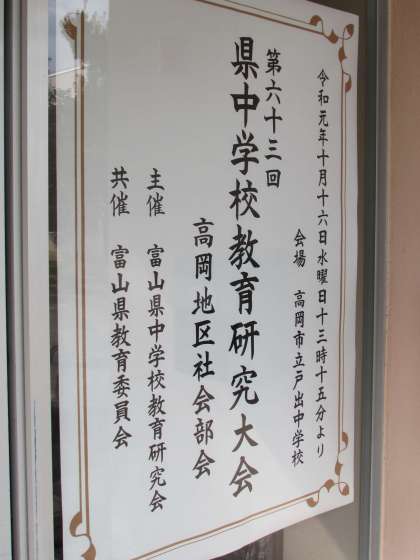 令和元年十月十六日水曜日十三時十五分より
会場　高岡市立戸出中学校
第六十三回
県中学校教育研究大会
高岡地区社会部会
主催　富山県中学校教育研究会
共催　富山県教育委員会